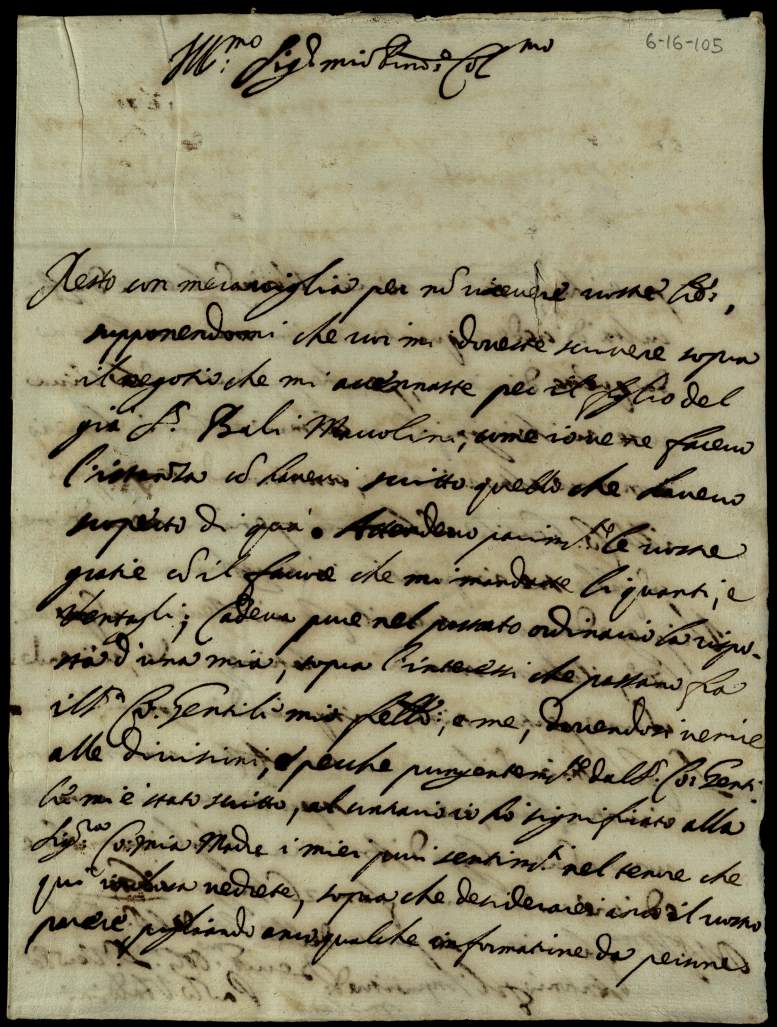 6-16-105
Ill:mo Sig:r mio Pron: Col:mo
Resto con maraviglia per nõ ricevere vostre lrẽ,
supponendomi che voi mi doveste scrivere sopra
il negotio che mi accennaste per il figlio del
già S.r Bali , come io ve ne facevo
l'istanza cõ havervi scritto quello che havevo
scoperto di quà. Attendevo parim.te le vostre
gratie cõ il favore che mi mandaste li guanti, e
Ventagli; Cadeva pure nel passato ordinario la rispo-
sta d'una mia, sopra l'interessi che passano fra
il S.r Co: Gentili mio frello:, e me, dovendosi venire
alle divisioni, e perche pungentem.te dal S. Co: Genti-
li mi è stato scritto, al contrario io hò significato alla
Sig:ra Co: mia Madre i miei puri sentim.ti nel tenore che
qui vedrete, sopra che desiderarei anco il vostro
parere pigliando anco qualche informatine da persone